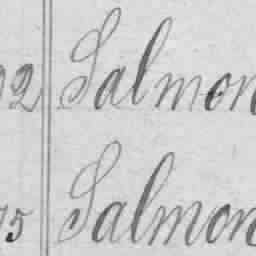 92 Salmon
75 Salmon